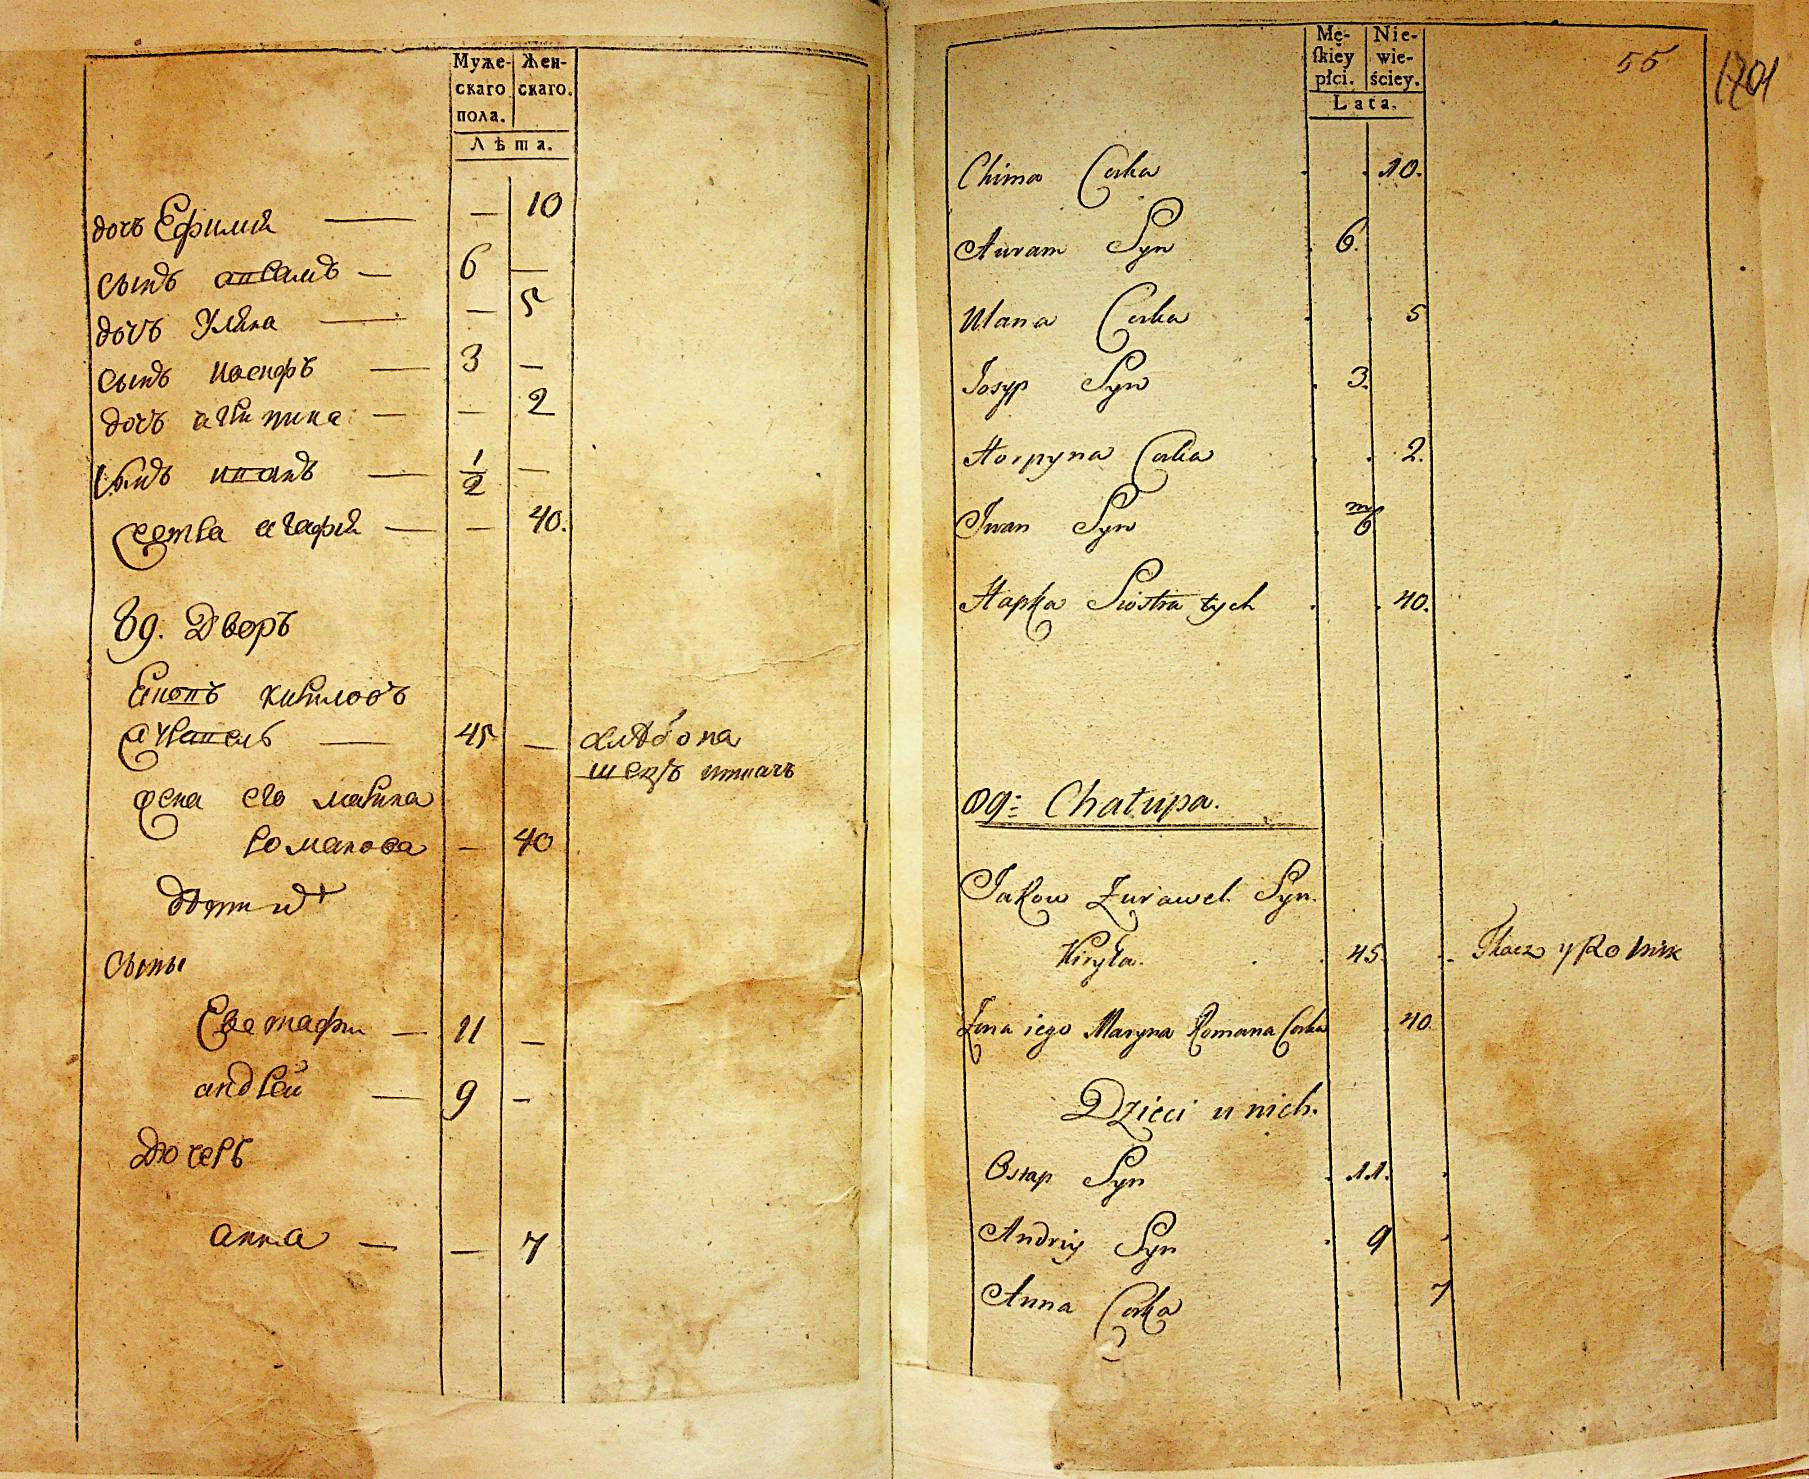 Муже-
скаго
пола.
Жен-
скаго.
Лѣта.
дочъ Ефимия — — 10
сынъ авъра́мъ — 6 —
дочъ Улияна — — 5
сынъ иосифъ — 3 —
дочъ агрипина — — 2
Сынъ иванъ — 1/2 —
сестра агафия — — 40.
89. Дворъ
Якопъ кириловъ
журавель — 45 — хлѣбопа
шецъ иткачъ
жена его марина
романова — 40
дѣти ихъ
сыны
Евстафи — 11 —
андрей — 9 —
Дочерь
анна — — 7
Mę-
skiey
płci.
Nie-
wie-
ściey.
Lata.
55
1701
Chima Corka . . 10.
Auram Syn . 6.
Ulana Corka . . 5
Josyp Syn . 3.
Horpyna Corka . . 2.
Jwan Syn . m/6
Hapka Siostra tych . . 40.
89: Chałupa.
Jakow Żurawel Syn.
Kiryła. . . 45. .. Tkacz y Rolnik
Żona iego Maryna Romana Corka . 40
Dzieci u nich.
Ostap Syn . 11. .
Andriy Syn . 9 .
Anna Corka 7